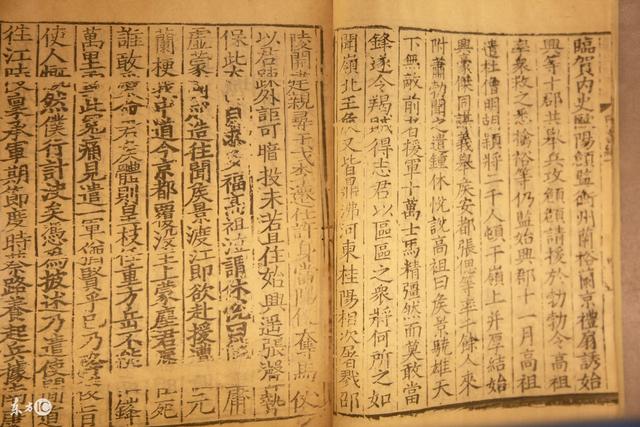 臨賀内史歐陽頠監衡州蘭裕蘭京禮扇誘始
興等十郡共舉兵攻頠頠請援於勃勃令高祖
率衆救之悉擒裕等仍監始興郡十一月高祖
遣杜僧明胡穎將二千人頓于嶺上并厚結始
興豪傑同謀義舉侯安都張偲等率千餘人來
附蕭勃聞之遣鍾休悅說高祖曰侯景驍雄天
下無敵前者援軍十萬士馬精彊然而莫敢當
鋒遂令羯賊得志君以區區之衆將何所之如
聞嶺北王侯又皆鼎沸河東桂陽相次屠戮邵
陵開建親尋干戈李遷仕許身當陽便奪馬仗
以君疎外詎可暗投未若且住始興遥張聲勢
保此太山自求多福高祖泣謂休悅曰僕本庸
虛蒙國成造往聞侯景渡江即欲赴援遭值元
蘭梗我中道今京都覆沒主上蒙塵君辱臣死
誰敢愛命君侯體則皇枝任重方岳不能摧鋒
萬里雪此冤痛見遣一軍猶賢乎已乃降後旨
使人慨然僕行計决矣憑為披述乃遣使間道
往江陵稟承軍期節度時蔡路養起兵據南
東方IC